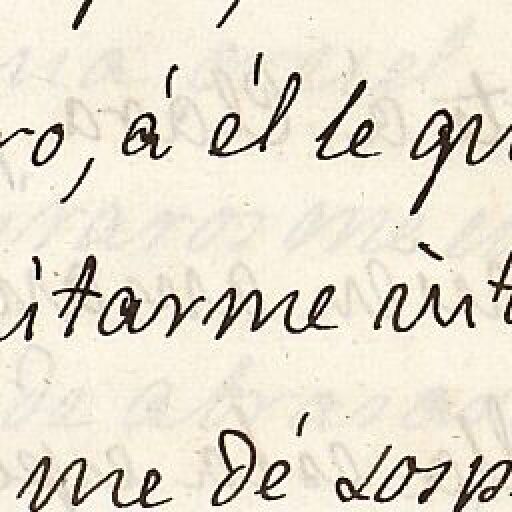 ro, á él le qu
itarme int
me dé sosp